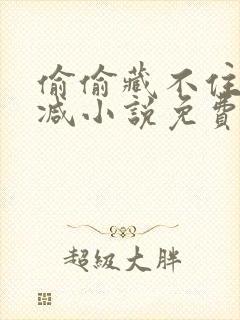 偷偷藏不住
减小說免費
超級大胖